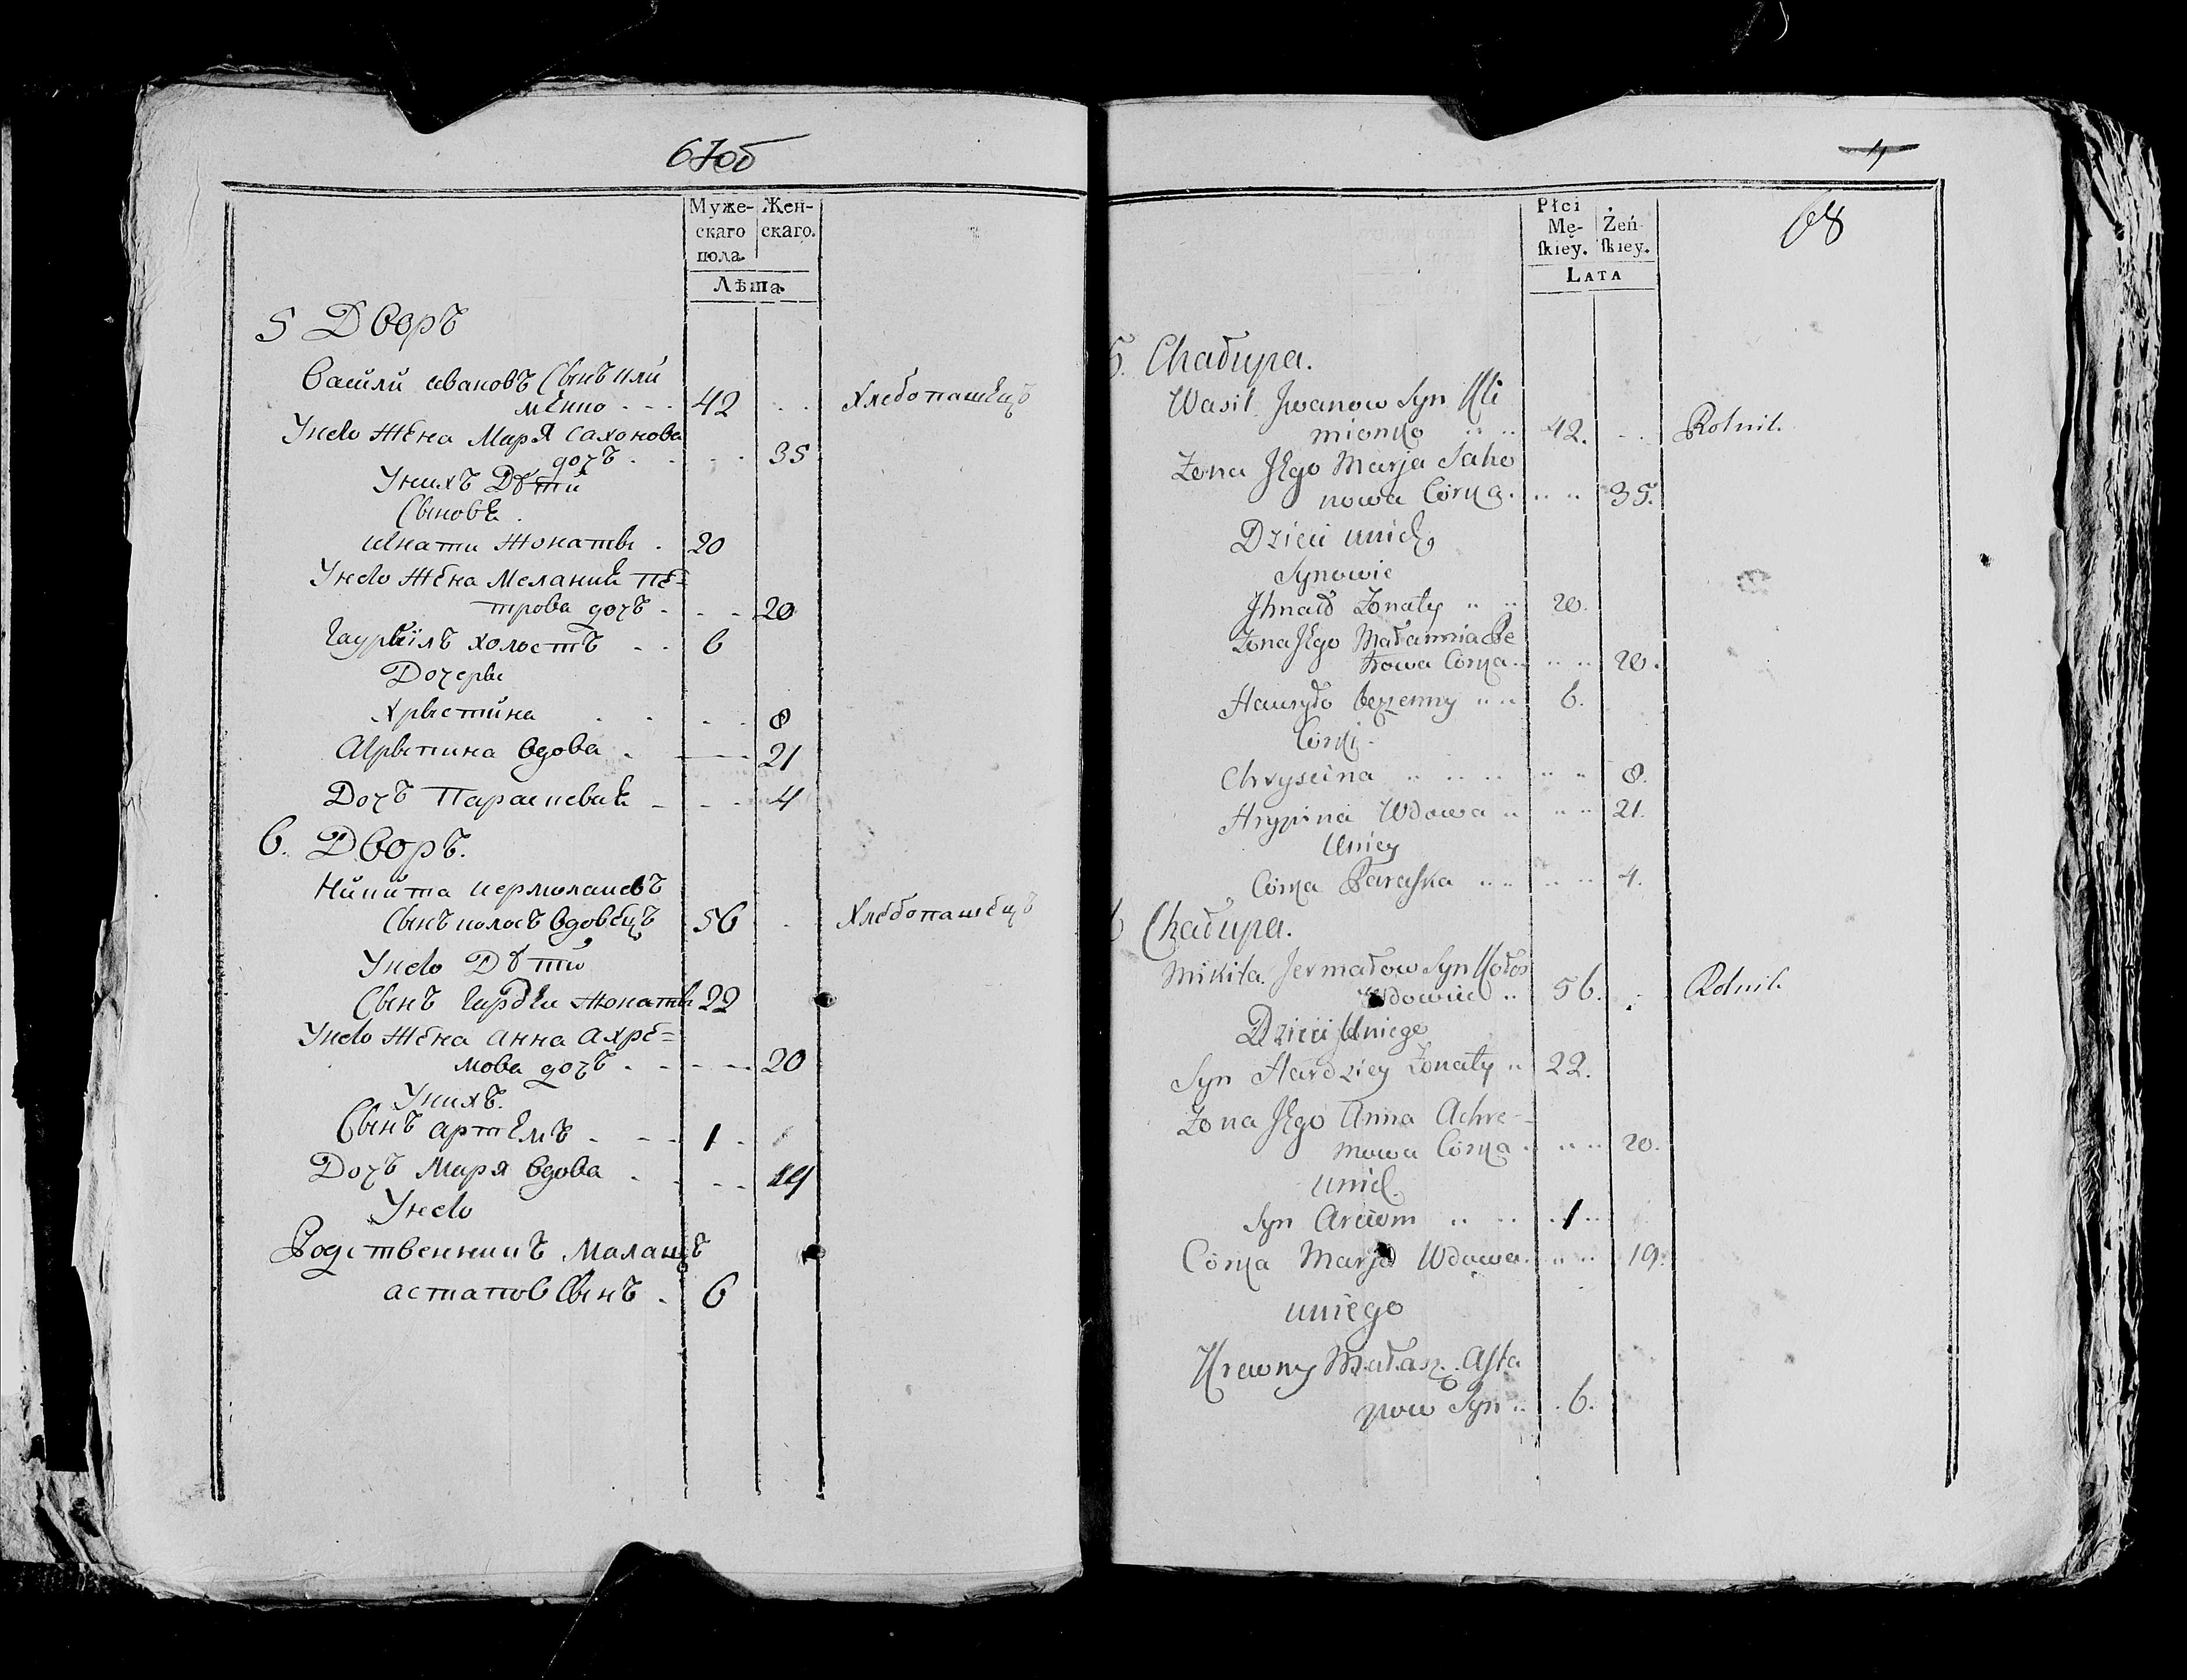 67об
Муже- Жен-
скаго скаго.
пола.
Лѣта.
5 Дворъ
Василй ивановъ Сынъ кли
мѣнко 42 Хлебопашецъ
Унево Жена Маря Сахонова
дочъ 35
Унихъ Дѣтй
Сыновѣ
игнатй Жонаты 20
Унево Жена Меланиѣ Пе-
трова дочъ 20
Гаурыилъ холостъ 6
Дочеры
Хрыстйна 8
Агрыпина вдова 21
Дочъ Параскевиѣ 4
6. Дворъ.
Нйкйта иермолаиевъ
Сынъ колосъ вдовецъ 56 Хлебопашецъ
Унево Дѣтй
Сынъ Гардѣи Жонаты 22
Унево Жена анна ахре=
мова дочъ 20
Унихъ.
Сынъ артѣмъ 1
Дочъ Маря вдова 19
Унево
Родственникъ Малашъ
астапов Сынъ 6
4
68
Płci
Mę- Żeń-
ſkiey. ſkiey.
LATA
5. Chałupa.
Wasil Jwanow Syn Kli
mionko 42. Rolnik.
Żona Jego Marja Saho
nowa Córka 35.
Dzieci unich
Synowie
Jhnat Żonaty 20.
Żona Jego Małannia Pe
trowa Córka 20.
Hauryło bezżenny 6.
Córki
Chryscina 8.
Hrypina Wdowa 21.
Uniey
Córka Paraſka 4.
6 Chałupa.
Mikita Jermałow Syn Kołos
Wdowiec 56. Rolnik.
Dzieci Uniego
Syn Hardziey Żonaty 22.
Żona Jego Anna Achre-
mowa Córka 20.
unich.
Syn Arciom 1
Córka Marja Wdowa 19.
uniego
Krewny Małasz Aſta
pow Syn 6.